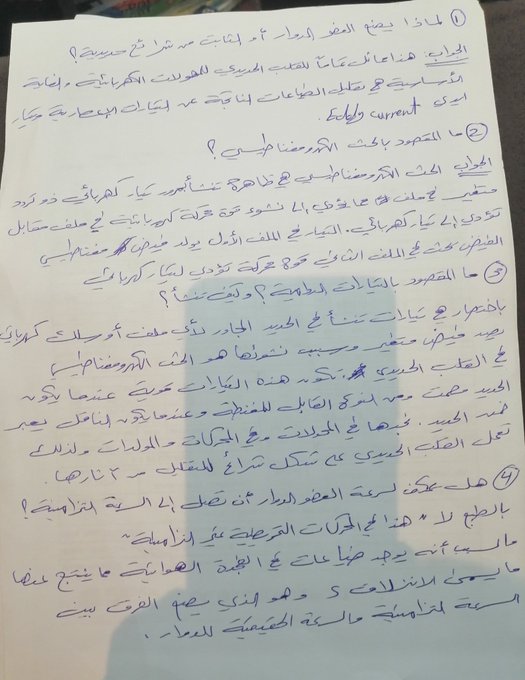 ① لماذا يصنع العضو الدوار أو الثابت من شرائح حديدية؟
الجواب: هذا مماثل تماماً للقلب الحديدي للمحولات الكهربائية والغاية
الأساسية هي تقليل الضياعات الناتجة عن التيارات الإعصارية وتيار
ايدي Eddy current.
② ما المقصود بالحث الكهرومغناطيسي؟
الجواب: الحث الكهرومغناطيسي هي ظاهرة تنشأ بمرور تيار كهربائي ذو تردد
متغير في ملف مما يؤدي إلى نشوء قوة محركة كهربائية في ملف مقابل
تؤدي إلى تيار كهربائي. التيار في الملف الأول يولد فيض مغناطيسي
الفيض يحث في الملف الثاني قوة محركة تؤدي لتيار كهربائي
③ ما المقصود بالتيارات الدوامية؟ وكيف تنشأ؟
باختصار هي تيارات تنشأ في الحديد المجاور لأي ملف أو سلك كهربائي
يصدر فيض متغير وسبب نشوئها هو الحث الكهرومغناطيسي
في القلب الحديدي تكون هذه التيارات قوية عندما يكون
الحديد مصمت ومن النوع القابل للمغنطة وعندما يكون الناقل يعبر
ضمن الحديد. نجدها في المحولات وفي المحركات والمولدات ولذلك
نعمل القلب الحديدي على شكل شرائح للتقليل من آثارها.
④ هل يمكن لسرعة العضو الدوار أن تصل إلى السرعة التزامنية؟
بالطبع لا "هذا في المحركات التحريضية غير التزامنية"
والسبب أنه يوجد ضياعات في الثغرة الهوائية مما ينتج عنها
ما يسمى الانزلاق s وهو الذي يصنع الفرق بين
السرعة التزامنية والسرعة الحقيقية للدوار.